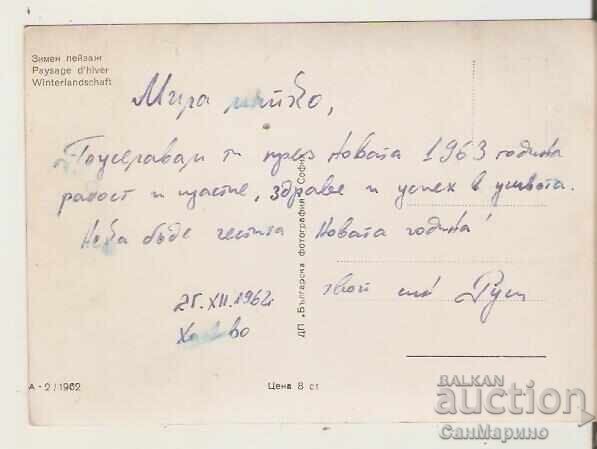 Зимен пейзаж
Paysage d'hiver
Winterlandschaft
Мила майко,
Пожелавам ти през Новата 1963 година
радост и щастие, здраве и успех в живота.
Нека бъде честита Новата година!
25.XII.1962
твой син
ДП „Българска фотография" София
А-2/1962
Цена 8 ст
BALKAN
auction
СанМарино